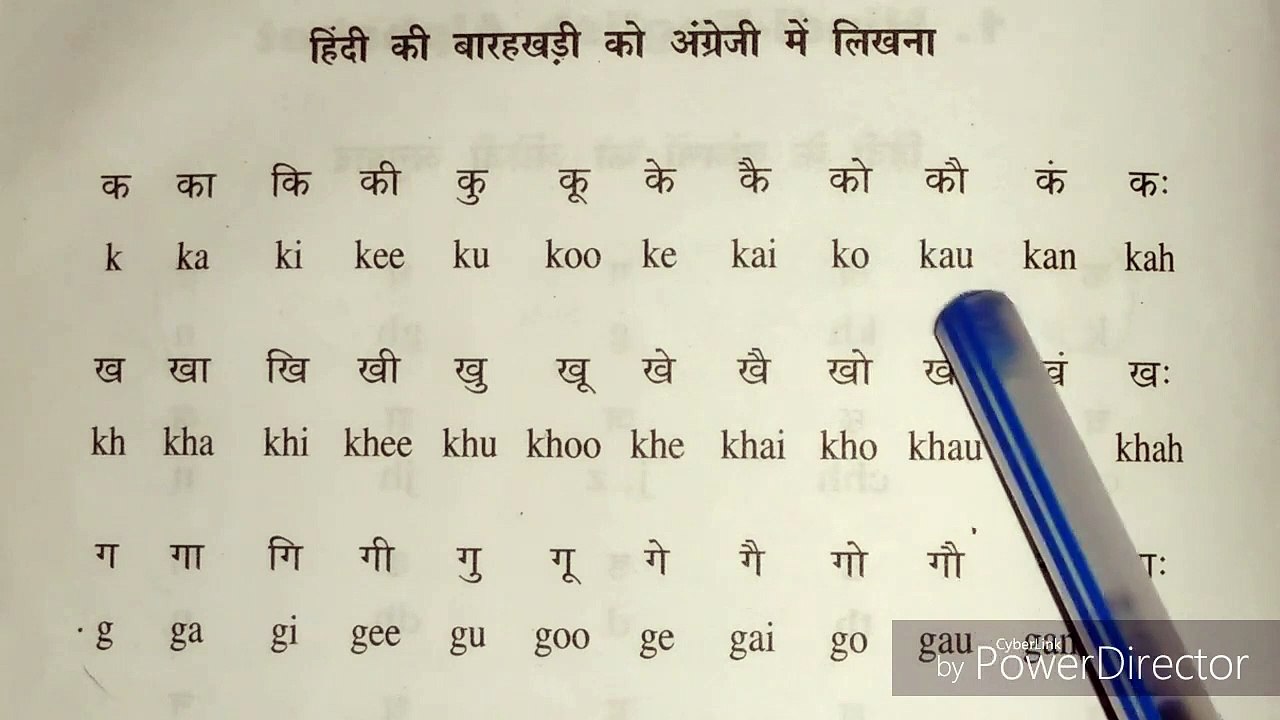 हिंदी की बारहखड़ी को अंग्रेजी में लिखना
क का कि की कु कू के कै को कौ कं कः
k ka ki kee ku koo ke kai ko kau kan kah
ख खा खि खी खु खू खे खै खो खः
kh kha khi khee khu khoo khe khai kho khau khah
ग गा गि गी गु गू गे गै गो गौ
g ga gi gee gu goo ge gai go gau gan
CyberLink
by PowerDirector